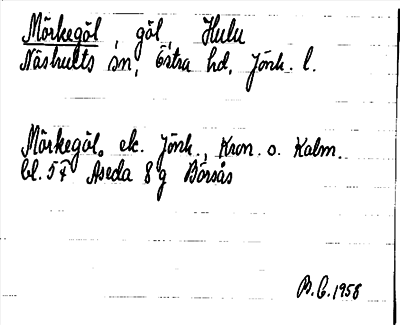 Mörkegöl, göl, Hulu
Näshults sn, Östra hd, Jönk. l.
Mörkegöl. ek. Jönk., Kron. o. Kalm.
bl. 54 Aseda 8 g Börsås
B.C. 1958